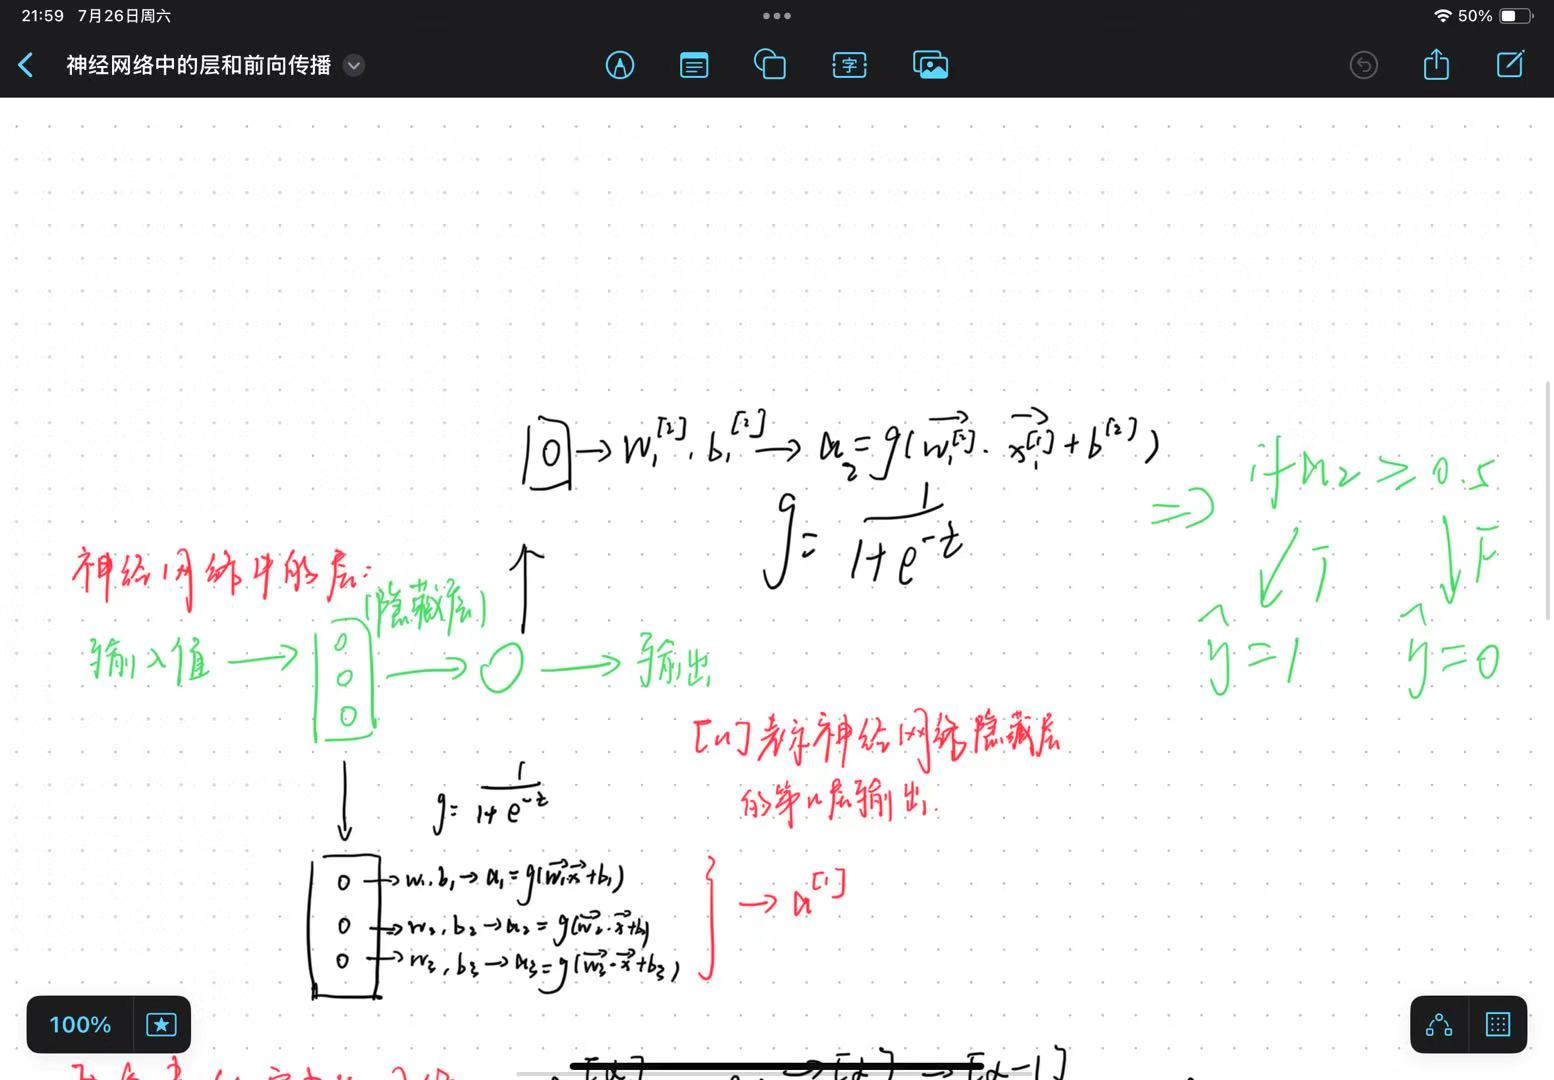 21:59 7月26日周六
50%
神经网络中的层和前向传播
字
0 → w₁^[2], b₁^[2] → a₂ = g(w₁^[2] · x₁^[1] + b^[2])
g = 1/(1+e^-z)
⇒ if a₂ ≥ 0.5
T F
ŷ=1 ŷ=0
神经网络中的层:
(隐藏层)
输入值 → 0 0 0 → O → 输出
[n]表示神经网络隐藏层
的第n层输出.
g = 1/(1+e^-z)
0 → w₁, b₁ → a₁ = g(w₁·x+b₁)
0 → w₂, b₂ → a₂ = g(w₂·x+b₂)
0 → w₃, b₃ → a₃ = g(w₃·x+b₃)
} → a^[1]
100%